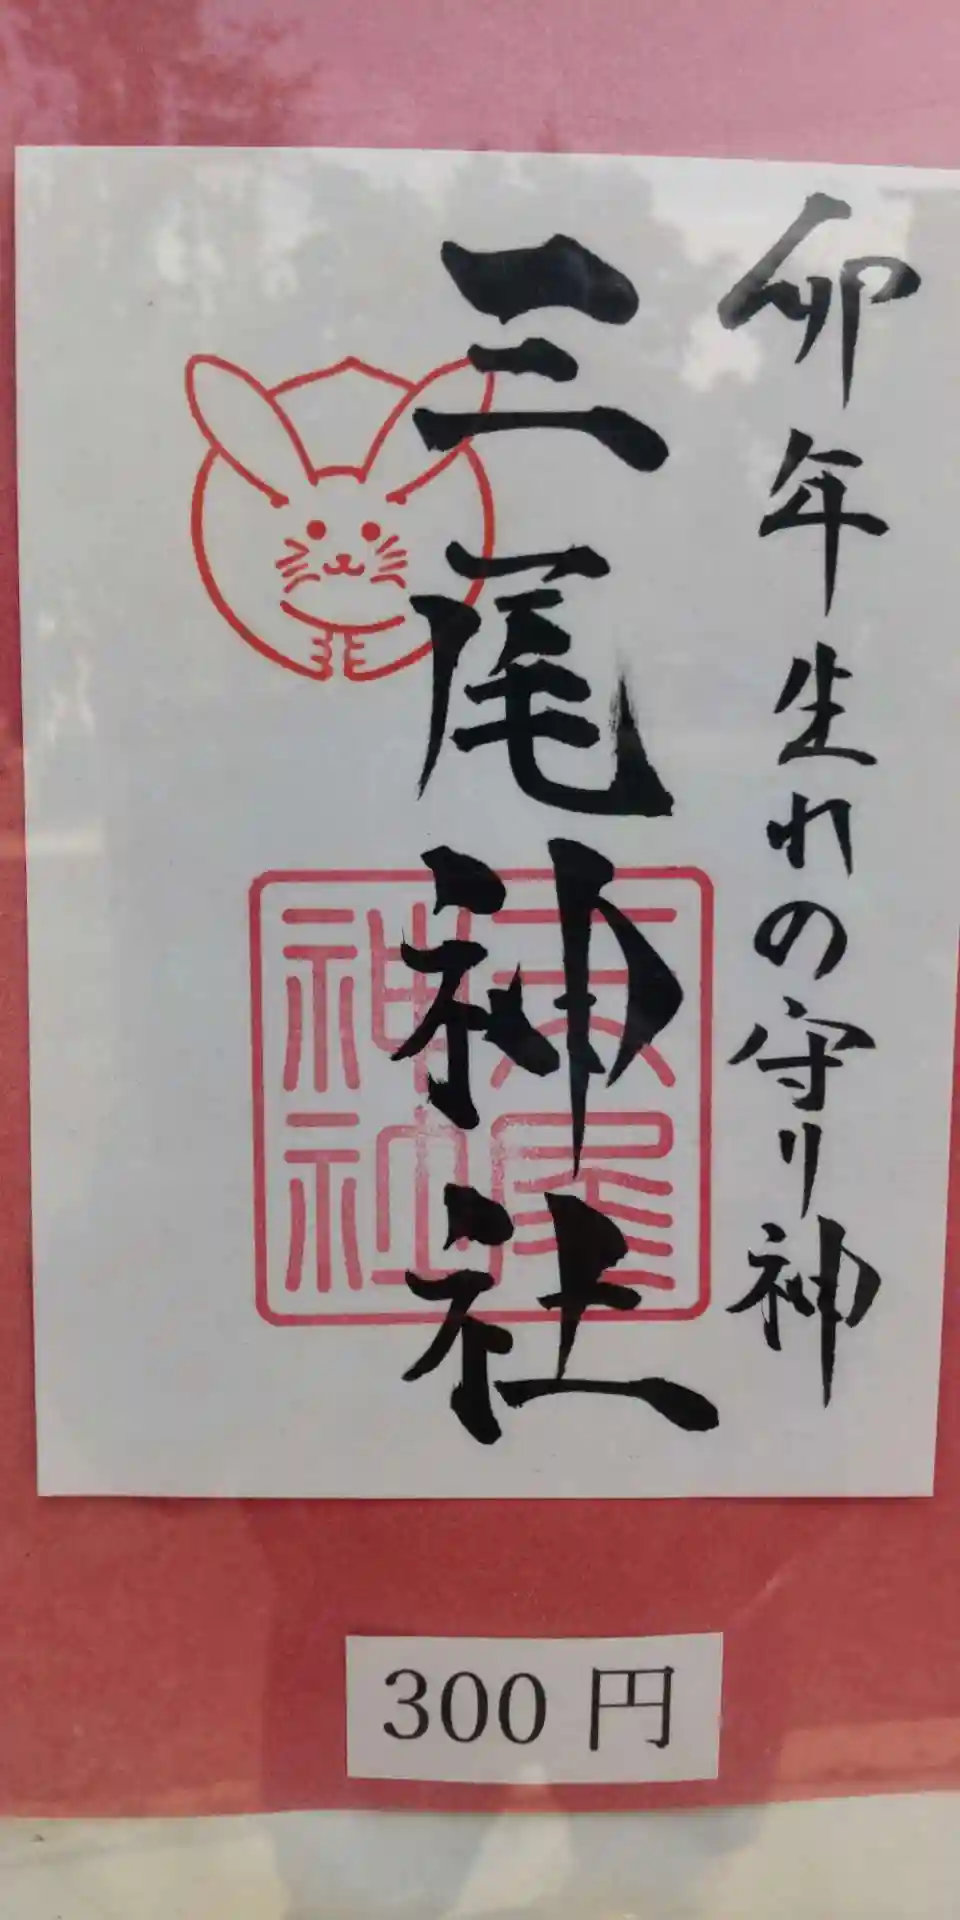 卯年生れの守り神
三尾神社
三尾
神社
300 円